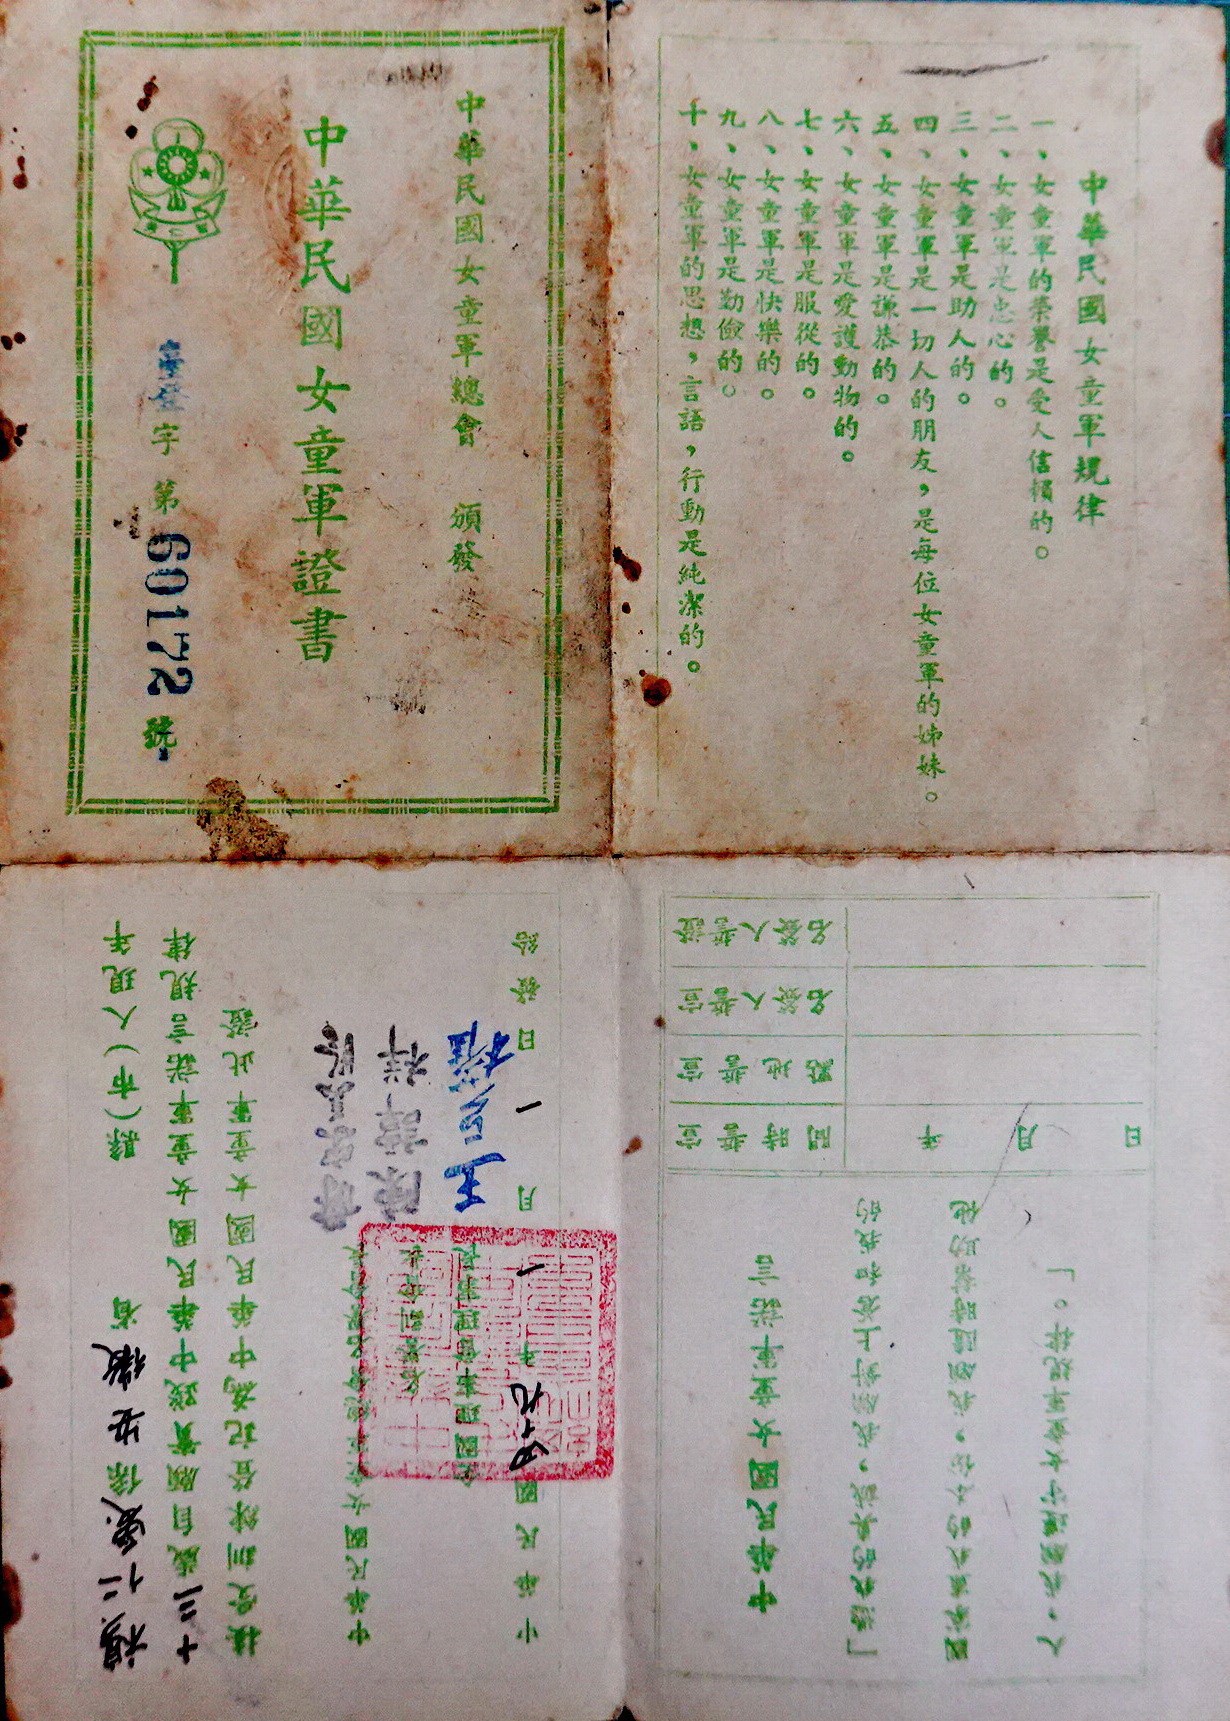 中華民國女童軍總會 頒發
中華民國女童軍證書
臺登字第60172號
中華民國女童軍規律
一、女童軍的榮譽是受人信賴的。
二、女童軍是忠心的。
三、女童軍是助人的。
四、女童軍是一切人的朋友，是每位女童軍的姊妹。
五、女童軍是謙恭的。
六、女童軍是愛護動物的。
七、女童軍是服從的。
八、女童軍是快樂的。
九、女童軍是勤儉的。
十、女童軍的思想，言語，行動是純潔的。
仁愛係安徽省 縣（市）人現年
十三歲自願實踐中華民國女童軍諾言規律
接受訓練登記為中華民國女童軍此證
中華民國女童軍總會名譽會長
名譽副會長 陳譚祥
全國理事會理事長
中華民國四九年一月一日發給
中華民國女童軍諾言
「憑我的真誠，我願對上蒼和我的
國家盡我的本份，我願隨時幫助他
人，我願遵守女童軍規律。」
宣誓時間 年 月 日
宣誓地點
宣誓人簽名
證誓人簽名